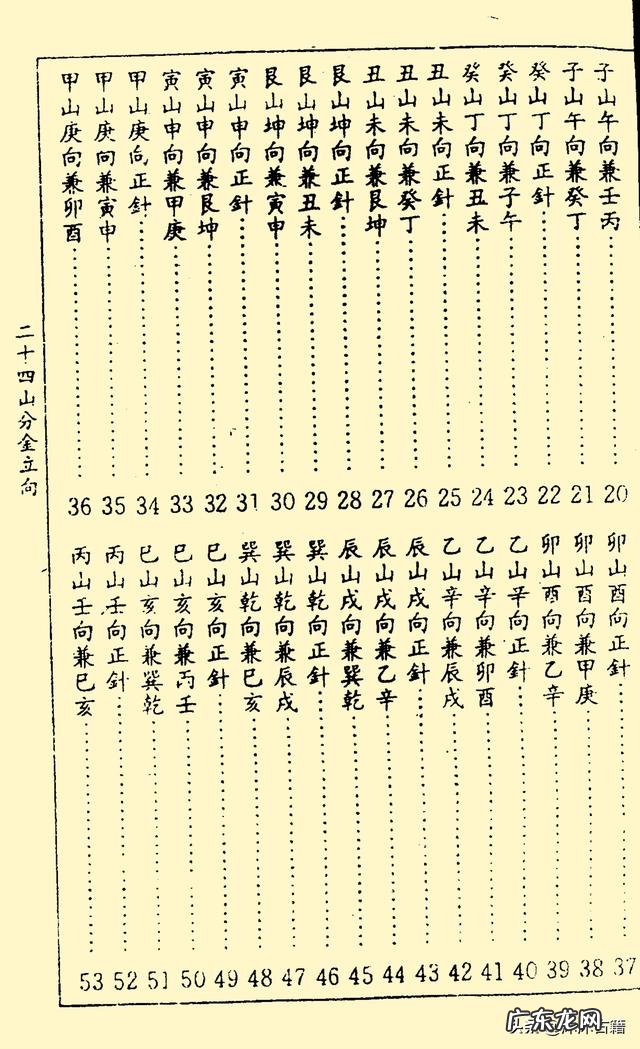 子山午向兼壬丙……20
子山午向兼癸丁……21
癸山丁向正針……22
癸山丁向兼子午……23
癸山丁向兼丑未……24
丑山未向正針……25
丑山未向兼癸丁……26
丑山未向兼艮坤……27
艮山坤向正針……28
艮山坤向兼丑未……29
艮山坤向兼寅申……30
寅山申向正針……31
寅山申向兼艮坤……32
寅山申向兼甲庚……33
甲山庚向正針……34
甲山庚向兼寅申……35
甲山庚向兼卯酉……36
卯山酉向正針……37
卯山酉向兼甲庚……38
卯山酉向兼乙辛……39
乙山辛向正針……40
乙山辛向兼卯酉……41
乙山辛向兼辰戌……42
辰山戌向正針……43
辰山戌向兼乙辛……44
辰山戌向兼巽乾……45
巽山乾向正針……46
巽山乾向兼辰戌……47
巽山乾向兼巳亥……48
巳山亥向正針……49
巳山亥向兼丙壬……50
巳山亥向兼巽乾……51
丙山壬向正針……52
丙山壬向兼巳亥……53
二十四山分金立向
广东龙网
古籍